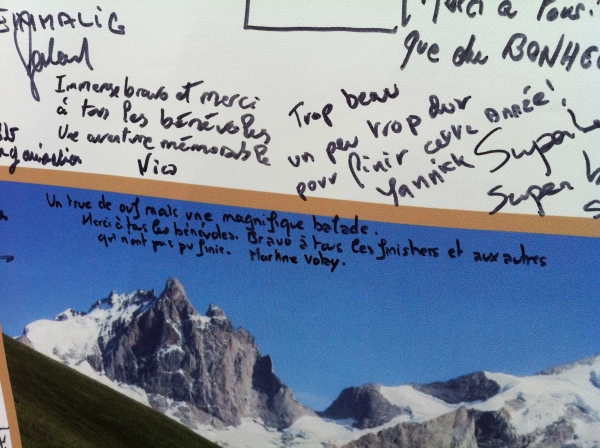 Merci à Tous.
que du BONHE
Immense bravo et merci
à tous les bénévoles
Une aventure mémorable
Vico
Trop beau
un peu trop dur
pour finir cette ANNÉE!
Yannick
Super
Super
Un truc de ouf mais une magnifique balade.
Merci à tous les bénévoles. Bravo à tous les finishers et aux autres
qui n'ont pas pu finir. Martine Volay.